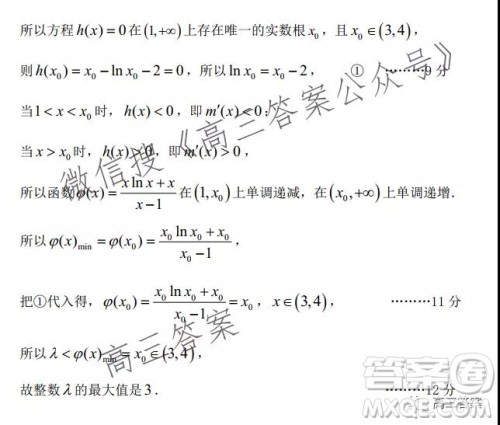 所以方程 h(x)=0 在 (1,+∞) 上存在唯一的实数根 x₀，且 x₀∈(3,4)，
则 h(x₀)=x₀−ln x₀−2=0，所以 ln x₀=x₀−2， ① ………9 分
当 1<x<x₀ 时，h(x)<0，即 m′(x)<0；
当 x>x₀ 时，h(x)>0，即 m′(x)>0，
所以函数 φ(x)=(x ln x+x)/(x−1) 在 (1,x₀) 上单调递减，在 (x₀,+∞) 上单调递增．
所以 φ(x)min=φ(x₀)=(x₀ ln x₀+x₀)/(x₀−1)，
把①代入得，φ(x₀)=(x₀ ln x₀+x₀)/(x₀−1)=x₀，x∈(3,4)， ………11 分
所以 λ<φ(x)min=x₀∈(3,4)，
故整数 λ 的最大值是 3． ………12 分
微信搜《高三答案公众号》
高三答案
答案圈
高三答案
MXQE.COM